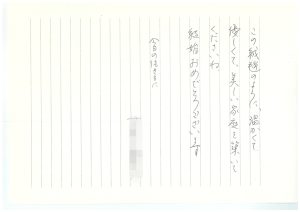 この絨毯のように、温かくて
優しくて、美しい家庭を築いて
くださいね
結婚おめでとうございます
今日の佳き日に